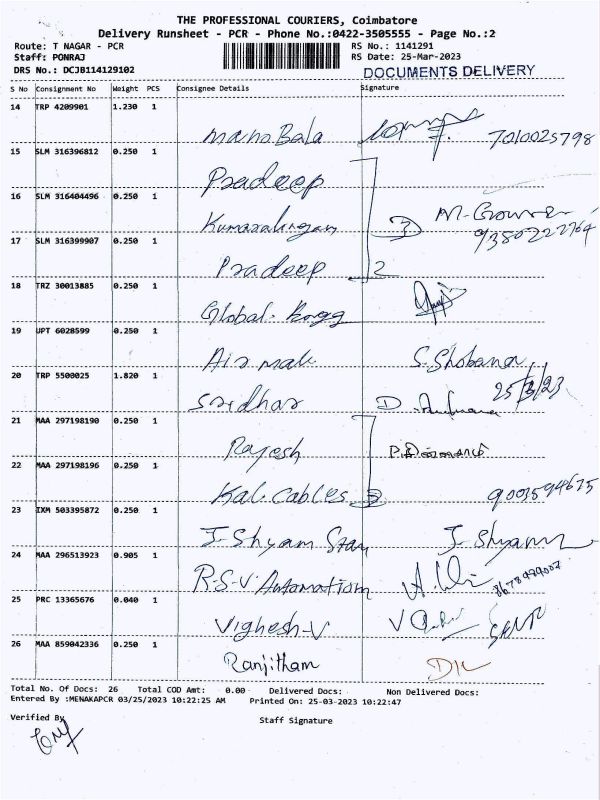 THE PROFESSIONAL COURIERS, Coimbatore
Delivery Runsheet - PCR - Phone No.:0422-3505555 - Page No.:2
Route: T NAGAR - PCR RS No.: 1141291
Staff: PONRAJ RS Date: 25-Mar-2023
DRS No.: DCJB114129102 DOCUMENTS DELIVERY
S No Consignment No Weight PCS Consignee Details Signature
14 TRP 4209901 1.230 1
Mano Bala 7010025798
15 SLM 316396812 0.250 1
Pradeep
16 SLM 316404496 0.250 1
Kumaralingam 3
17 SLM 316399907 0.250 1
Pradeep 2
18 TRZ 30013885 0.250 1
Global.
19 UPT 6028599 0.250 1
Air mak S. Shobana
20 TRP 5500025 1.820 1 25/3/23
Sridhar D.
21 MAA 297198190 0.250 1
Rajesh
22 MAA 297198196 0.250 1
Kal. Cables 9003594675
23 IXM 503395872 0.250 1
J. Shyam J. Shyam
24 MAA 296513923 0.905 1
R.S.V. Automation
25 PRC 13365676 0.040 1
Vighesh-V
26 MAA 859042336 0.250 1
Ranjitham
Total No. Of Docs: 26 Total COD Amt: 0.00 Delivered Docs: Non Delivered Docs:
Entered By :MENAKAPCR 03/25/2023 10:22:25 AM Printed On: 25-03-2023 10:22:47
Verified By Staff Signature